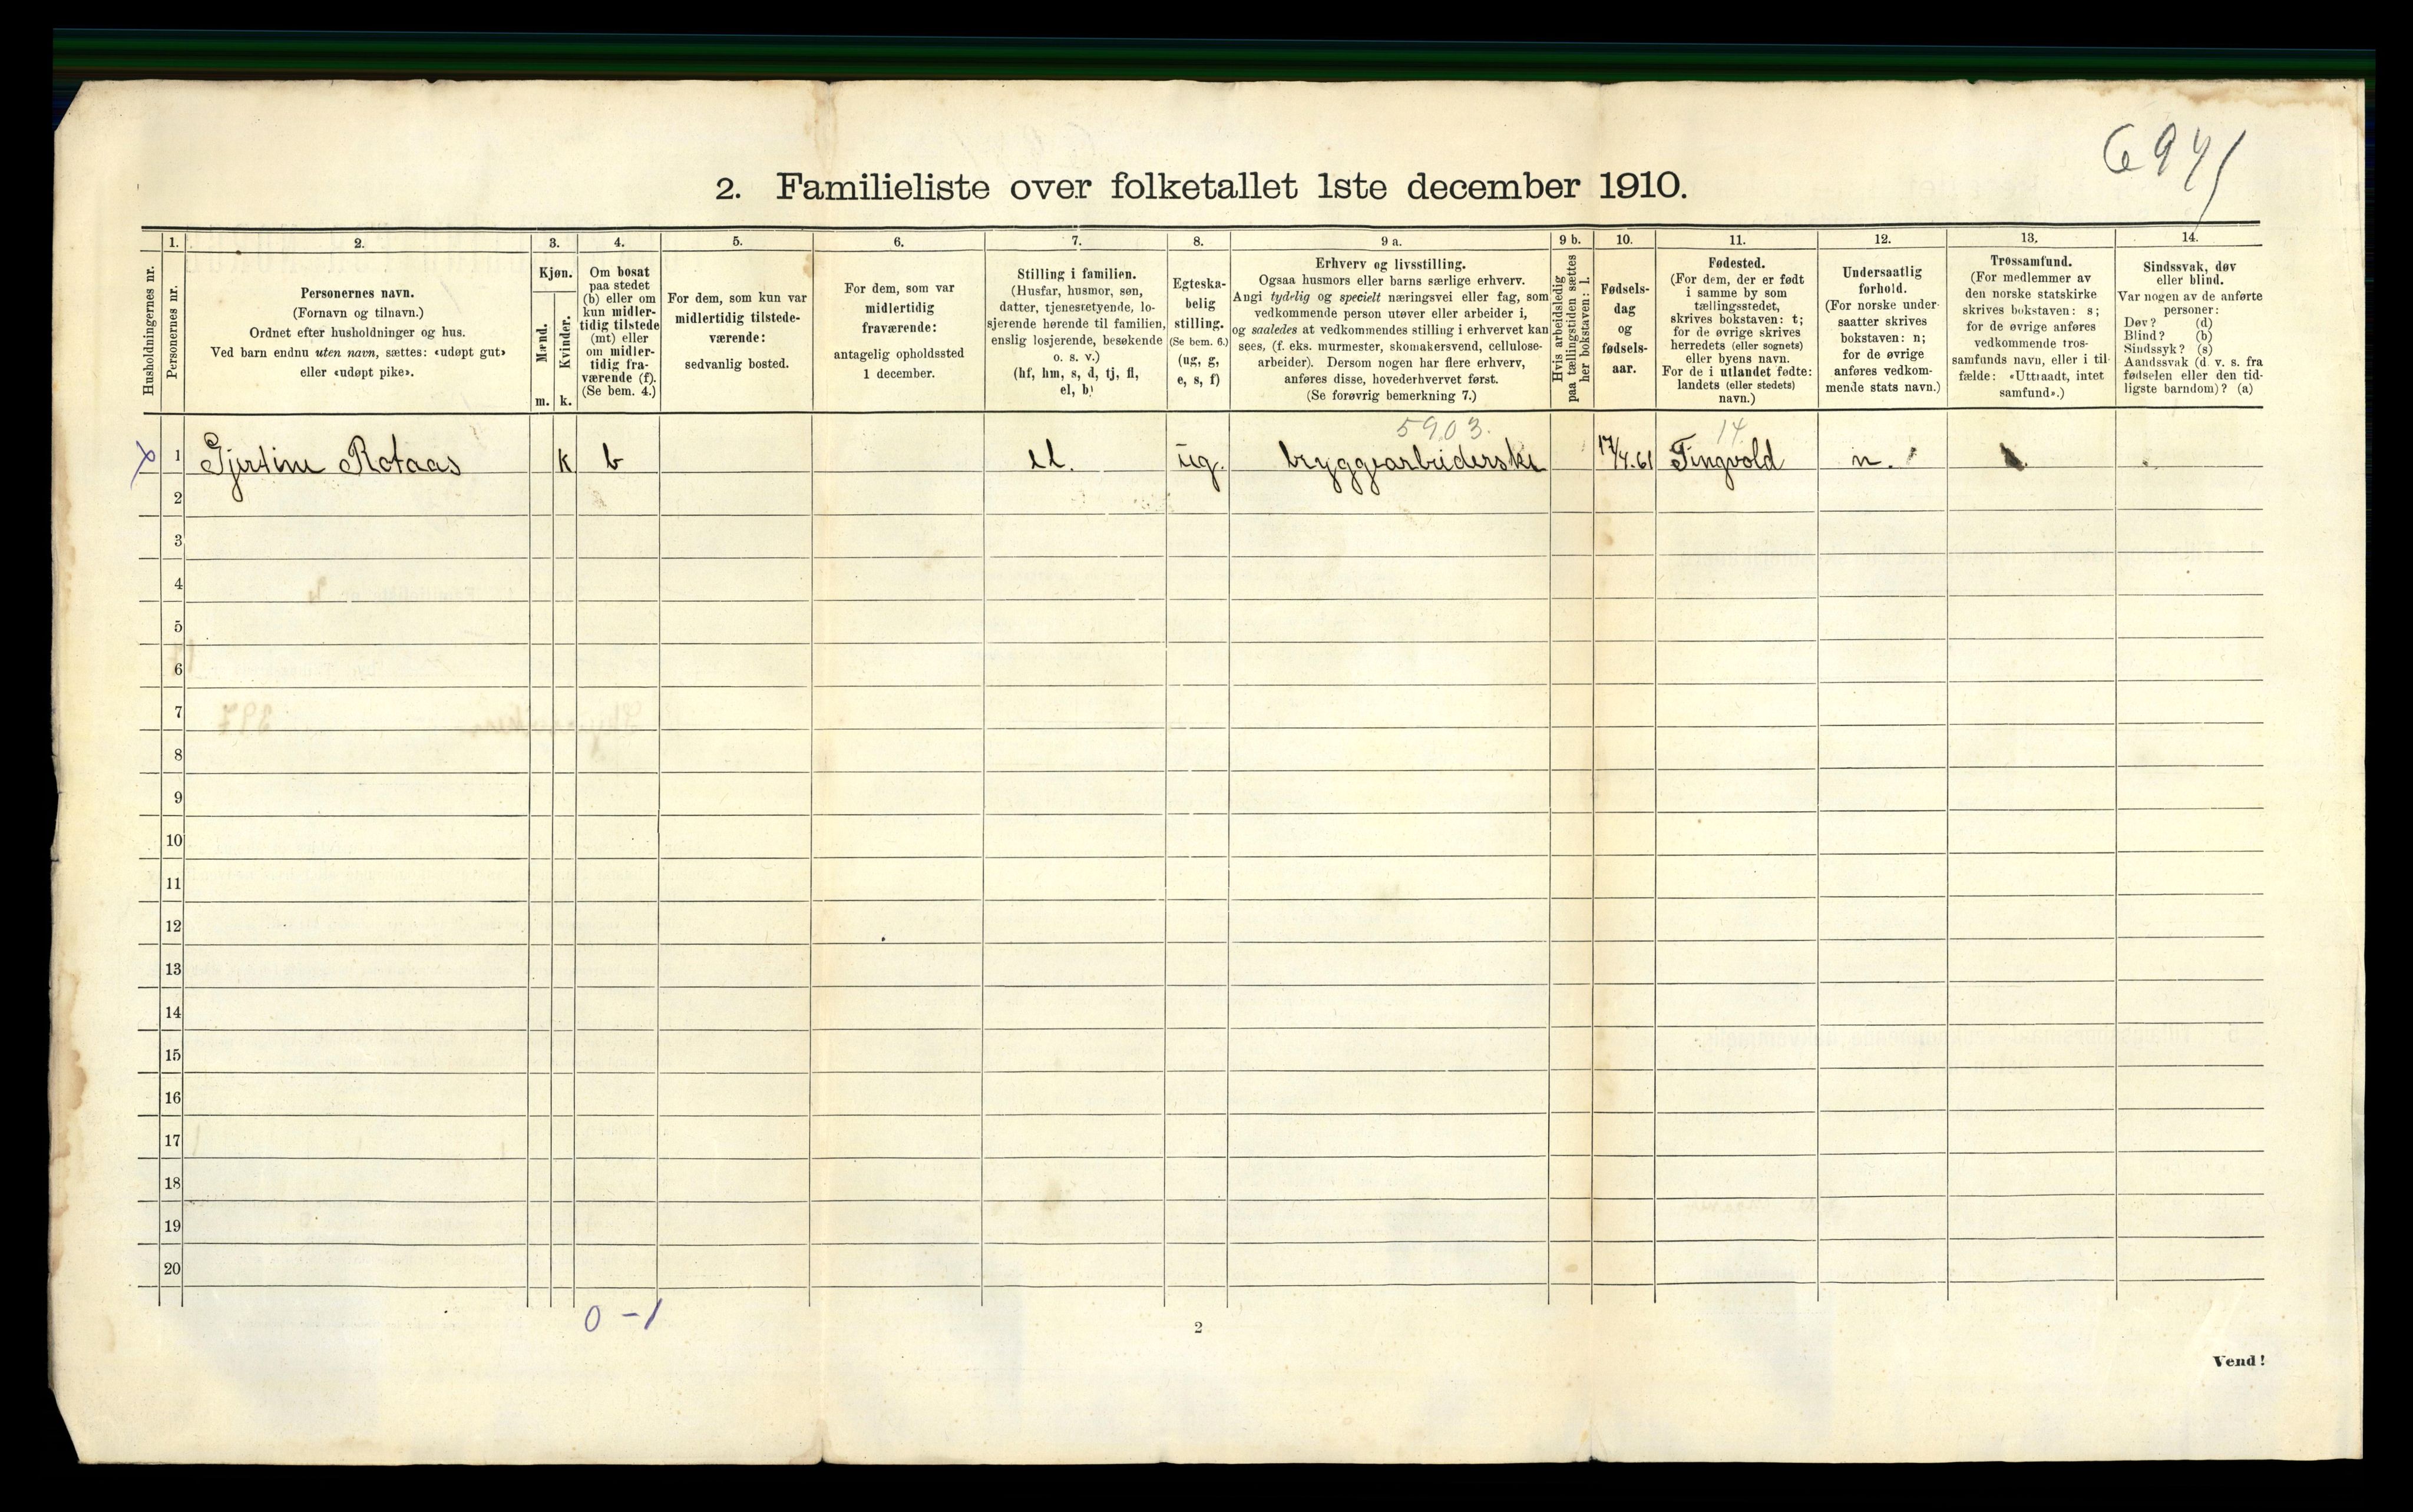 6941
2. Familieliste over folketallet 1ste december 1910.
Husholdningernes nr.
1.
Personernes nr.
2.
Personernes navn.
(Fornavn og tilnavn.)
Ordnet efter husholdninger og hus.
Ved barn endnu uten navn, sættes: «udøpt gut»
eller «udøpt pike».
3.
Kjøn.
Mænd.
m.
Kvinder.
k.
4.
Om bosat
paa stedet
(b) eller om
kun midler-
tidig tilstede
(mt) eller
om midler-
tidig fra-
værende (f).
(Se bem. 4.)
5.
For dem, som kun var
midlertidig tilstede-
værende:
sedvanlig bosted.
6.
For dem, som var
midlertidig
fraværende:
antagelig opholdssted
1 december.
7.
Stilling i familien.
(Husfar, husmor, søn,
datter, tjenestetyende, lo-
sjerende hørende til familien,
enslig losjerende, besøkende
o. s. v.)
(hf, hm, s, d, tj, fl,
el, b)
8.
Egteska-
belig
stilling.
(Se bem. 6.)
(ug, g,
e, s, f)
9 a.
Erhverv og livsstilling.
Ogsaa husmors eller barns særlige erhverv.
Angi tydelig og specielt næringsvei eller fag, som
vedkommende person utøver eller arbeider i,
og saaledes at vedkommendes stilling i erhvervet kan
sees, (f. eks. murmester, skomakersvend, cellulose-
arbeider). Dersom nogen har flere erhverv,
anføres disse, hovederhvervet først.
(Se forøvrig bemerkning 7.)
9 b.
Hvis arbeidsledig
paa tællingstiden sættes
her bokstaven: l.
10.
Fødsels-
dag
og
fødsels-
aar.
11.
Fødested.
(For dem, der er født
i samme by som
tællingsstedet,
skrives bokstaven: t;
for de øvrige skrives
herredets (eller sognets)
eller byens navn.
For de i utlandet fødte:
landets (eller stedets)
navn.)
12.
Undersaatlig
forhold.
(For norske under-
saatter skrives
bokstaven: n;
for de øvrige
anføres vedkom-
mende stats navn.)
13.
Trossamfund.
(For medlemmer av
den norske statskirke
skrives bokstaven: s;
for de øvrige anføres
vedkommende tros-
samfunds navn, eller i til-
fælde: «Uttraadt, intet
samfund».)
14.
Sindssvak, døv
eller blind.
Var nogen av de anførte
personer:
Døv? (d)
Blind? (b)
Sindssyk? (s)
Aandssvak (d. v. s. fra
fødselen eller den tid-
ligste barndom)? (a)
5903. 14
x 1 Gjertine Rotaas k b el. ug. bryggearbeiderske 17/4.61 Tingvold n.
2
3
4
5
6
7
8
9
10
11
12
13
14
15
16
17
18
19
20
0 - 1
2
Vend!